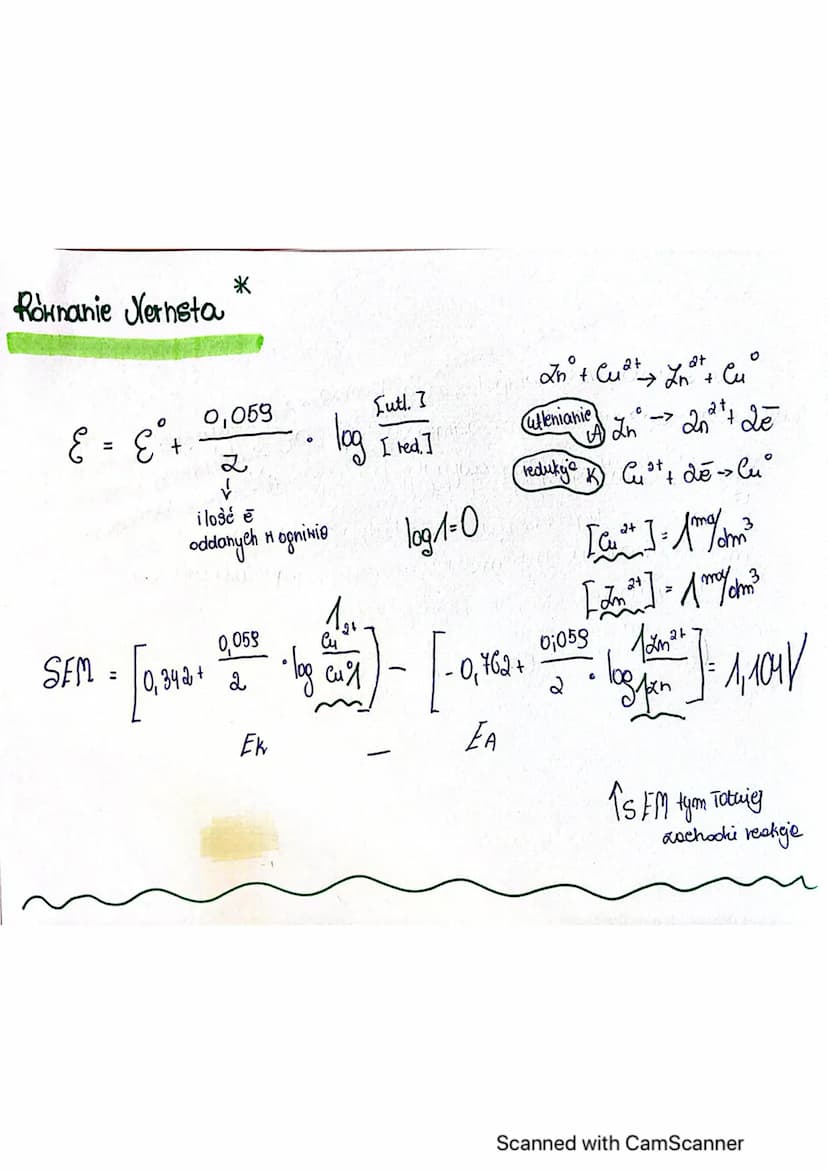 Równanie Nernsta *
ε = ε° + 0,059/z · log [utl.]/[red.]
ilość ē
oddanych w ogniwie
log1=0
Zn° + Cu²⁺ → Zn²⁺ + Cu°
utlenianie A Zn° → Zn²⁺ + 2ē
redukcja K Cu²⁺ + 2ē → Cu°
[Cu²⁺] = 1 mol/dm³
[Zn²⁺] = 1 mol/dm³
SEM = [0,342 + 0,059/2 · log 1 Cu²⁺/Cu° 1) - [-0,762 + 0,059/2 · log 1 Zn²⁺/1 Zn] = 1,104V
EK - EA
↑SEM tym łatwiej
zachodzi reakcja
Scanned with CamScanner